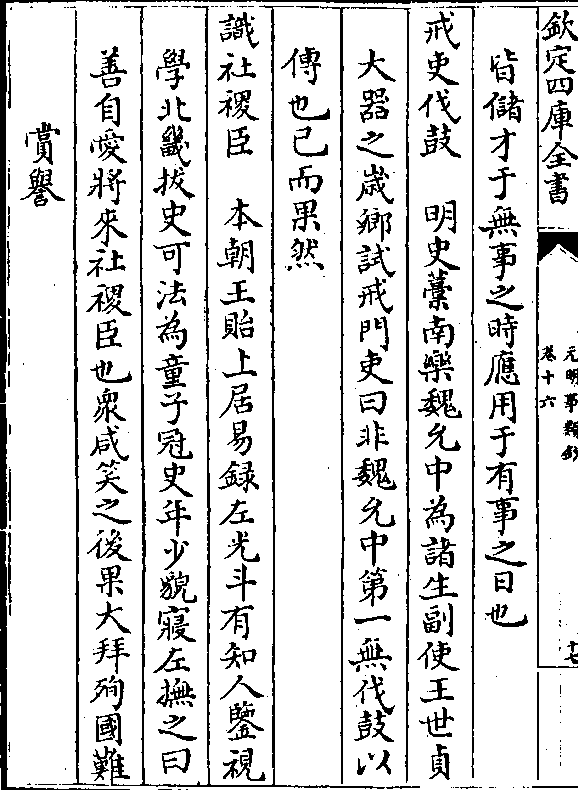 欽定四庫全書
元明事類鈔
卷十六
十七
皆儲才于無事之時應用于有事之日也
戒吏伐鼓　明史藳南樂魏允中為諸生副使王世貞
大器之嵗鄉試戒門吏曰非魏允中第一無伐鼓以
傳也已而果然
識社稷臣　本朝王貽上居易録左光斗有知人鑒視
學北畿拔史可法為童子冠史年少貌寢左撫之曰
善自愛將來社稷臣也衆咸笑之後果大拜殉國難
賞譽